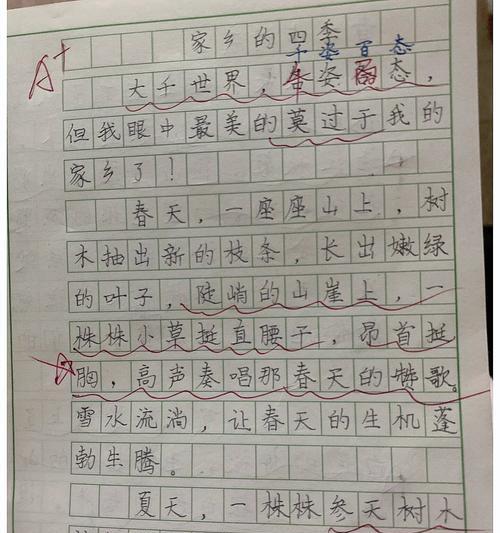 A+
家乡的四季
千姿百态
大千世界，千姿百态，
但我眼中最美的莫过于我的
家乡了！
春天，一座座山上，树
木抽出新的枝条，长出嫩绿
的叶子，陡峭的山崖上，一
株株小草挺直腰干，昂首挺
胸，高声奏唱那春天的赞歌。
雪水流淌，让春天的生机蓬
勃生腾。
夏天，一株株参天树木